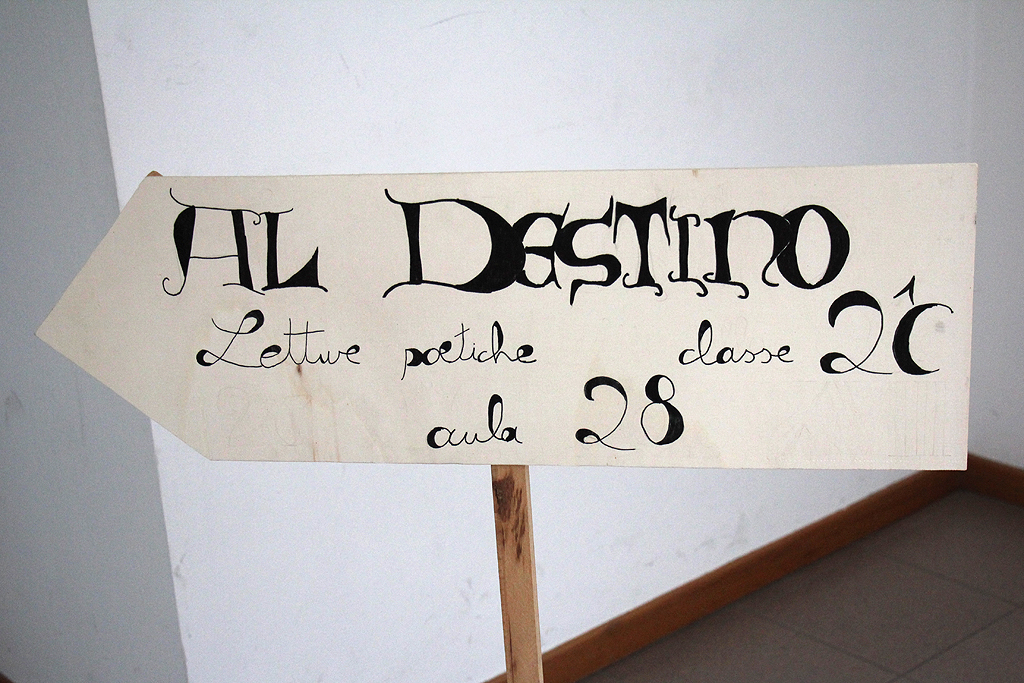 AL DESTINO
Letture poetiche classe 2^C
aula 28